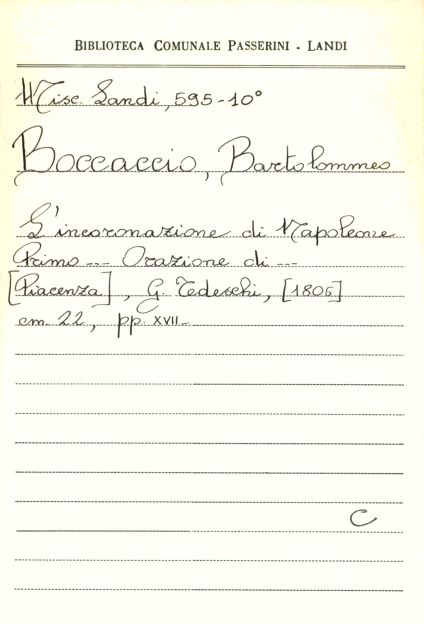 BIBLIOTECA COMUNALE PASSERINI - LANDI
Misc. Landi, 595-10°
Boccaccio, Bartolommeo
L'incoronazione di Napoleone
Primo --- Orazione di ---
[Piacenza], G. Tedeschi, [1805]
cm. 22, pp. XVII.
C